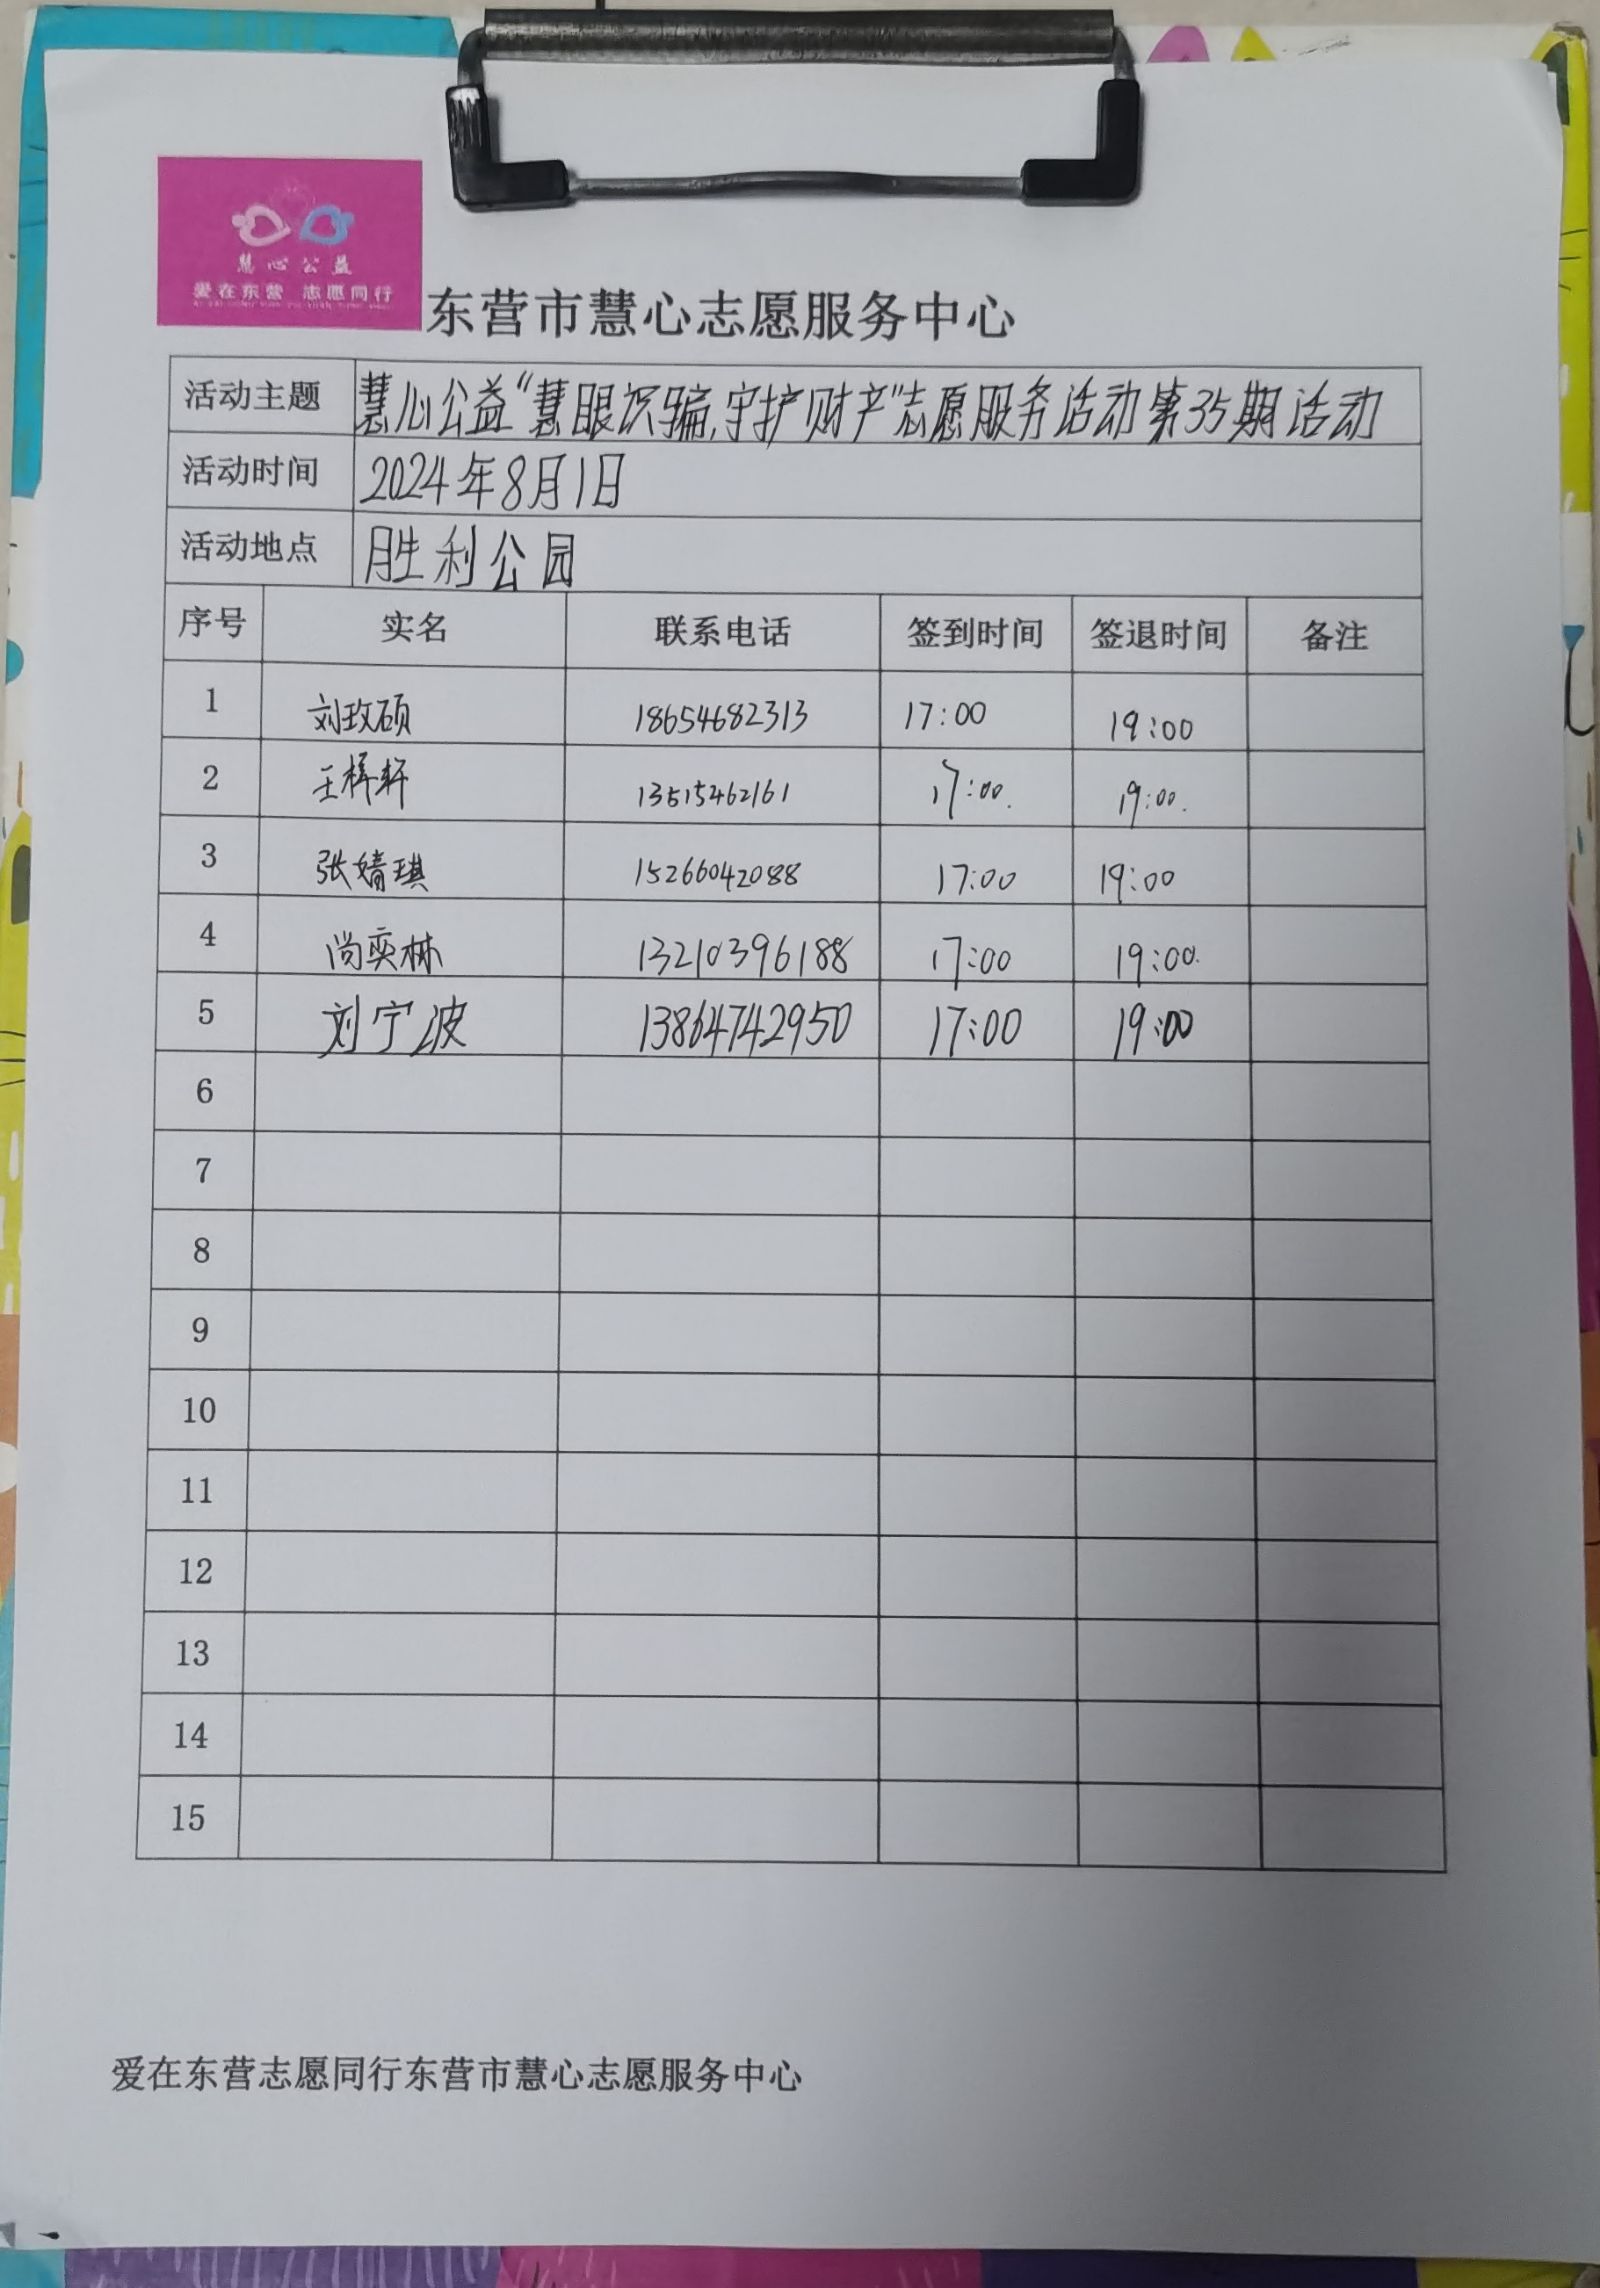 慧心公益
爱在东营 志愿同行
东营市慧心志愿服务中心
活动主题 慧心公益“慧眼识骗,守护财产”志愿服务活动第35期活动
活动时间 2024年8月1日
活动地点 胜利公园
序号 实名 联系电话 签到时间 签退时间 备注
1 刘玫硕 18654682313 17:00 19:00
2 王梓轩 13515462161 17:00. 19:00.
3 张婧琪 15266042088 17:00 19:00
4 尚奕林 13210396188 17:00 19:00.
5 刘宁波 13864742950 17:00 19:00
6
7
8
9
10
11
12
13
14
15
爱在东营志愿同行东营市慧心志愿服务中心